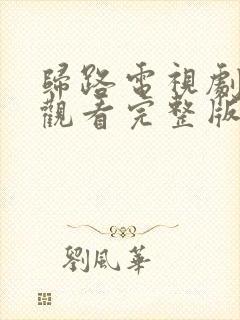 歸路電視劇
觀看完整版
劉風華